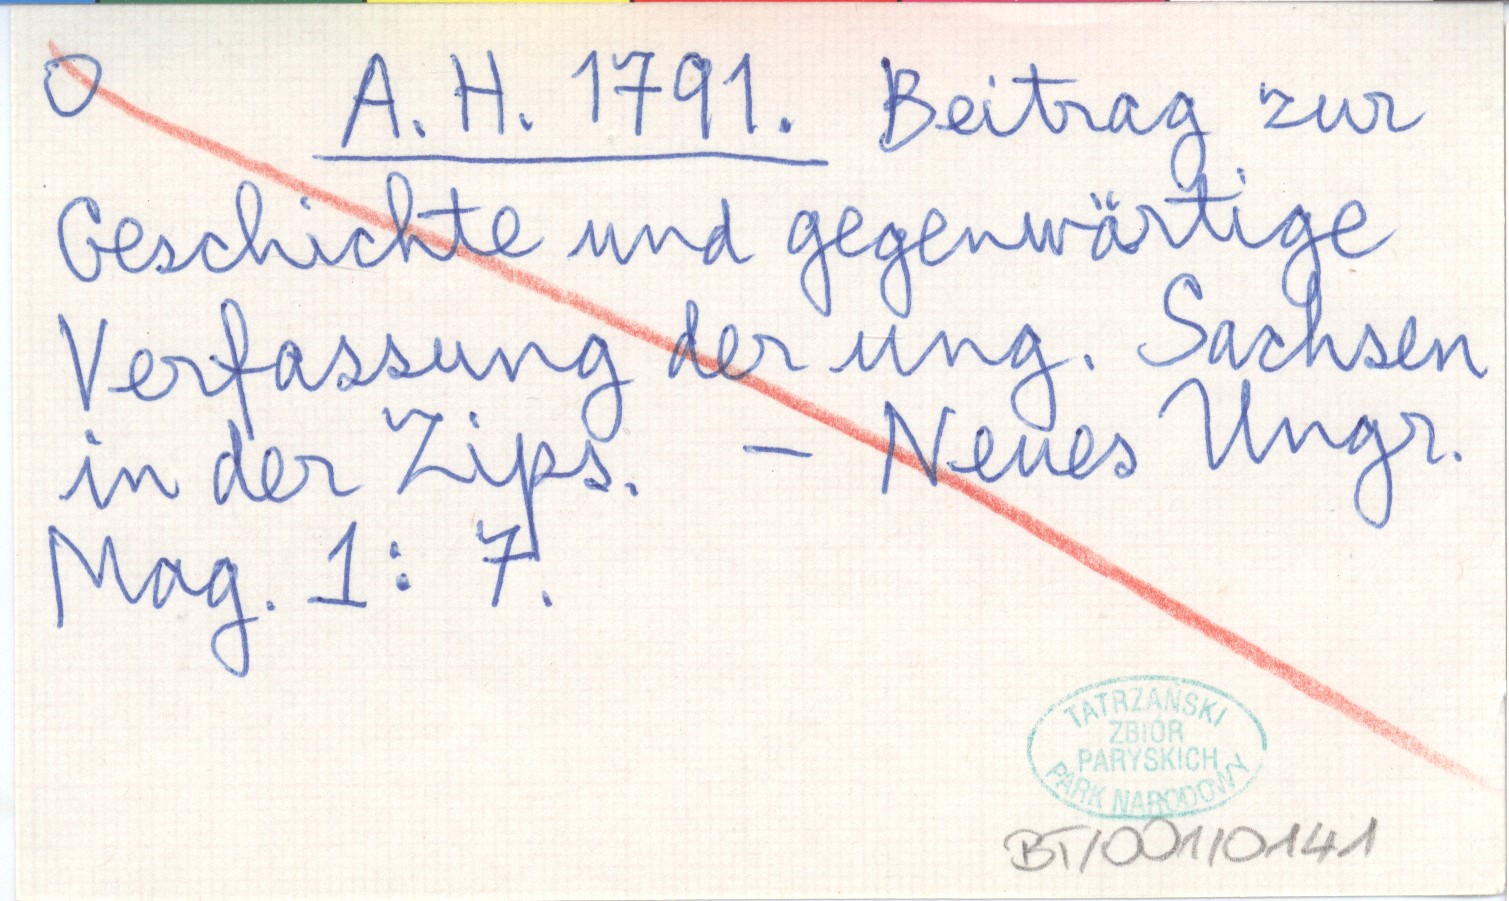 O A. H. 1791. Beitrag zur
Geschichte und gegenwärtige
Verfassung der ung. Sachsen
in der Zips. — Neues Ungr.
Mag. 1: 7.
TATRZAŃSKI
ZBIÓR
PARYSKICH
PARK NARODOWY
BT/001/0141